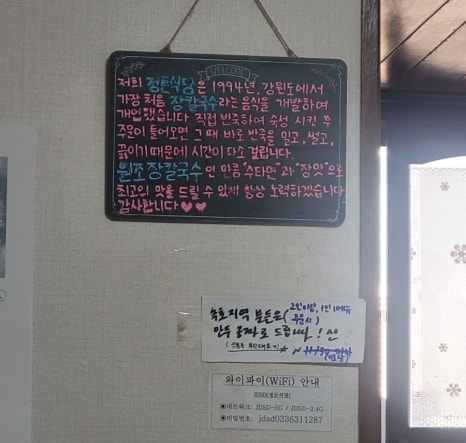 WELCOME
저희 정든식당은 1994년, 강원도에서
가장 처음 장칼국수라는 음식을 개발하여
개업됐습니다. 직접 반죽하여 숙성 시킨 후
주문이 들어오면 그때 바로 반죽을 밀고, 썰고,
끓이기 때문에 시간이 다소 걸립니다.
원조장칼국수 인 만큼 "수타면"과 "장맛"으로
최고의 맛을 드릴 수 있게 항상 노력하겠습니다
감사합니다♥♥
속초지역 분들은(2인이상, 1인 1메뉴
주문시)
만두 공짜로 드립니다!
와이파이(WiFi) 안내
JDSD(정든식당)
◉네트워크: JDSD-5G / JDSD-2.4G
◉비밀번호: jdsd0336311287